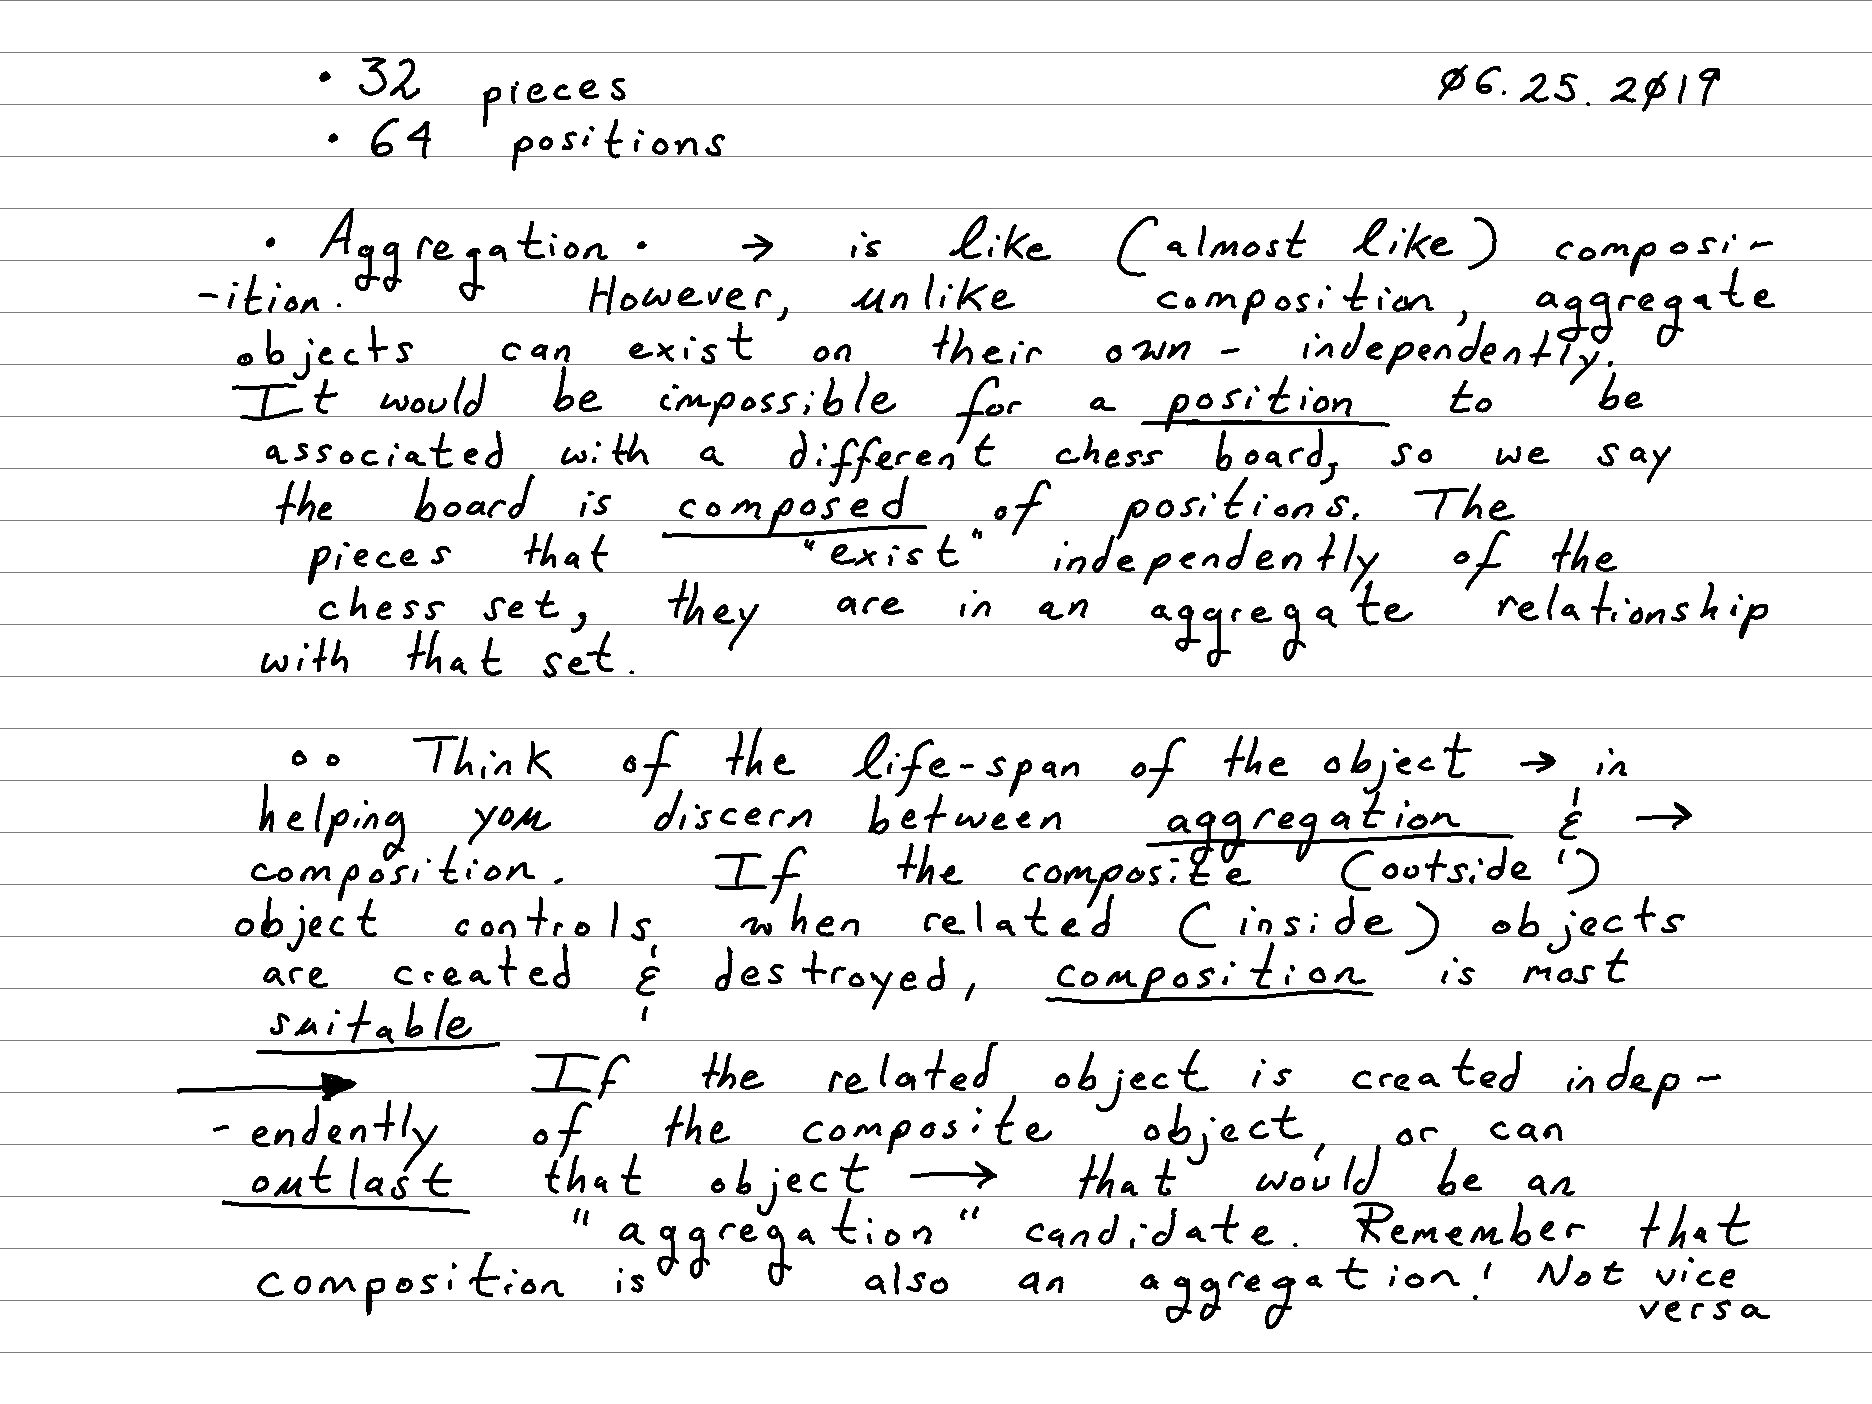 • 32 pieces 06.25.2019
• 64 positions
• Aggregation • → is like (almost like) composi-
-ition. However, unlike composition, aggregate
objects can exist on their own - independently.
It would be impossible for a position to be
associated with a different chess board, so we say
the board is composed of positions. The
pieces that "exist" independently of the
chess set, they are in an aggregate relationship
with that set.
∘∘ Think of the life-span of the object → in
helping you discern between aggregation & →
composition. If the composite (outside')
object controls when related (inside) objects
are created & destroyed, composition is most
suitable
→ If the related object is created indep-
-endently of the composite object, or can
outlast that object → that would be an
"aggregation" candidate. Remember that
composition is also an aggregation! Not vice
versa